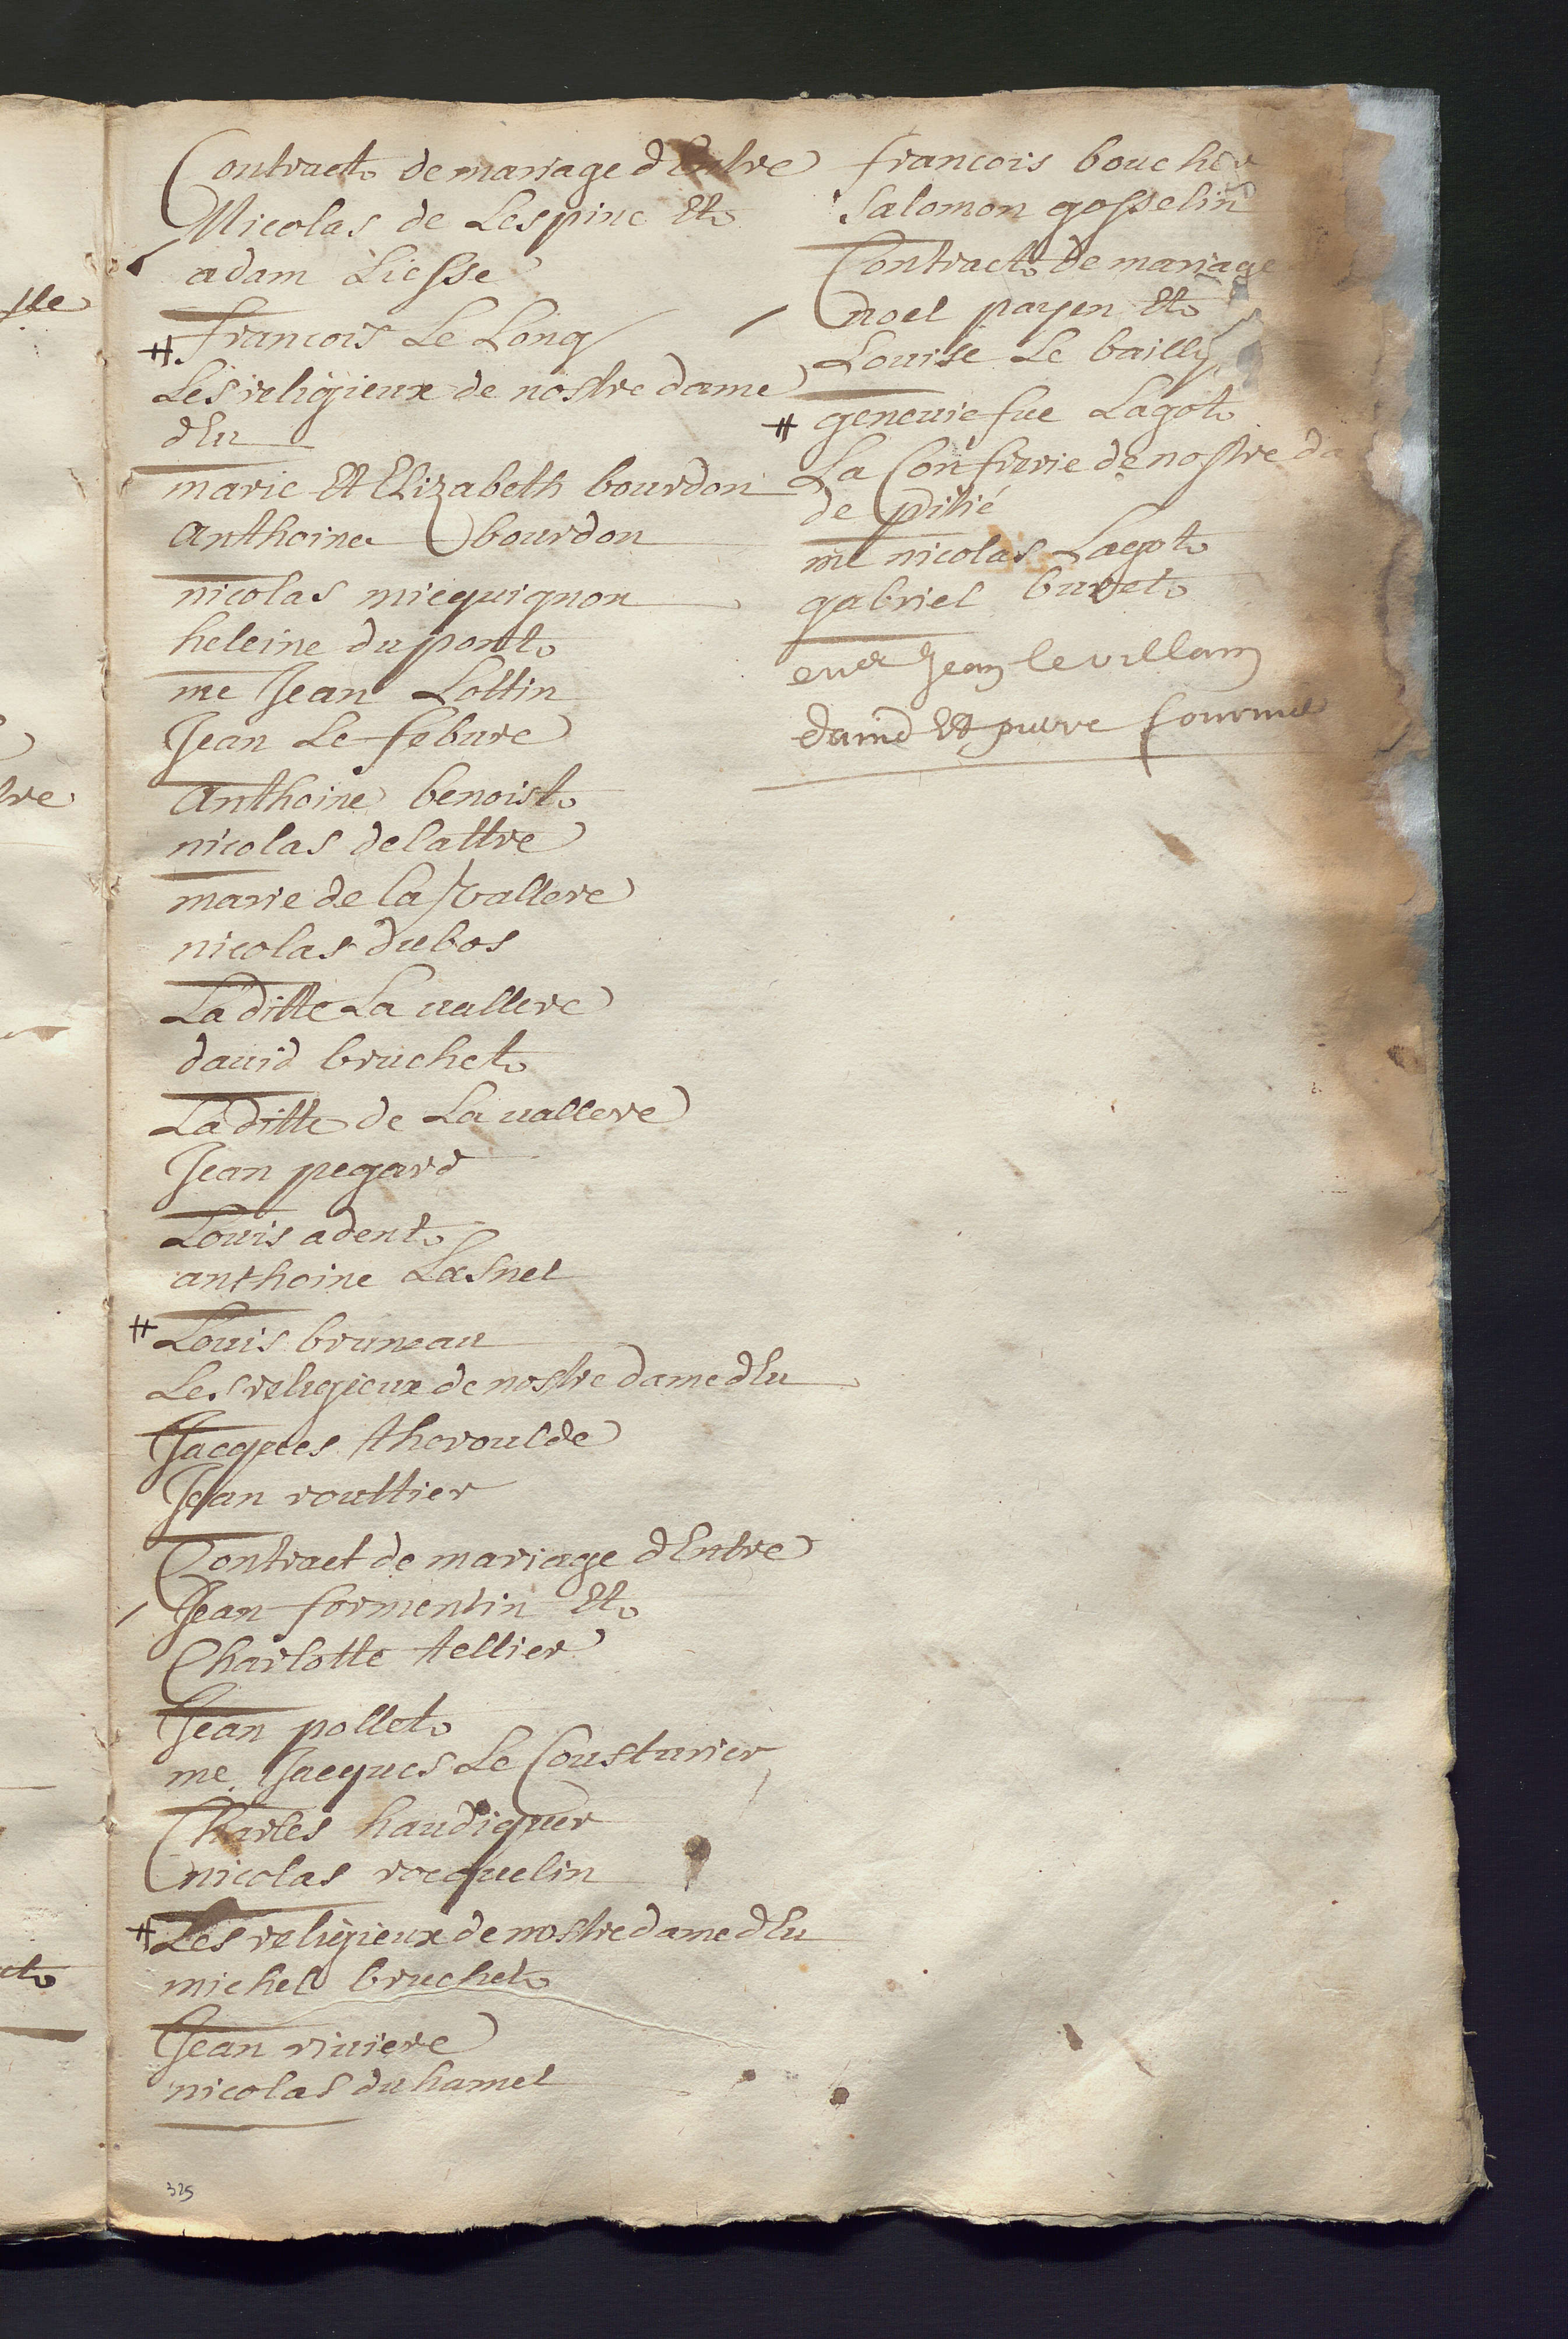 Contract de mariage dEntre
Nicolas de Lespine Et
adam Liesse
# francois Le Long
Les religieux de nostre dame
dEu
marie Et Elizabeth bourdon
Anthoine bourdon
nicolas micquignon
heleine dupont
me Jean Lottin
Jean Le febure
Anthoine benoist
nicolas delattre
marie de la Vallere
nicolas dubos
La ditte La uallere
dauid bruchet
La ditte de La uallere
Jean pegard
Louis adent
anthoine Lasnel
# Louis bruneau
Les religieux de nostre dame dEu
Jacques theroulde
Jean routtier
Contract de mariage dEntre
Jean formentin Et
Charlotte tellier
Jean pollet
me Jacques Le Cousturier
Charles haudiquer
nicolas rocquelin
# Les religieux de nostre dame dEu
michel bruchet
Jean riuiere
nicolas duhamel
325
francois boucher
Salomon gosselin
Contract de mariage
noel payen Et
Louise Le bailly
# geneuiefue Lagot
La Confrerie de nostre da
de pitié
me nicolas Lagot
gabriel buret
Jean le villain
dauid Et pierre